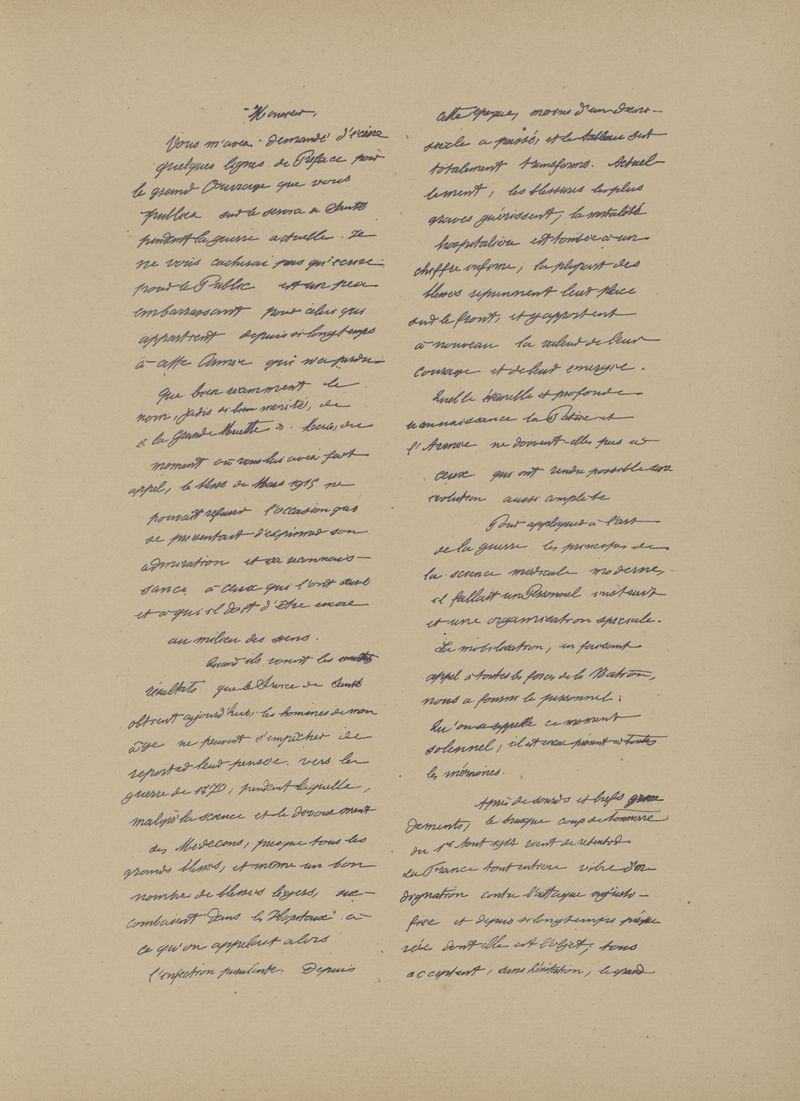 Monsieur,
Vous m'avez demandé d'écrire
quelques lignes de Préface pour
le grand Ouvrage que vous
publiez sur le service de Santé
pendant la guerre actuelle. Je
ne vous cacherai pas qu'écrire
pour le Public est un peu
embarrassant pour celui qui
appartient depuis si longtemps
à cette Armée qui n'a perdu
que bien récemment le
nom, jadis si bien mérité, de
« la Grande Muette ». Mais, du
moment où vous lui avez fait
appel, le blessé de Mars 1915 ne
pouvait refuser l'occasion qui
se présentait d'exprimer son
admiration et sa reconnais-
sance à ceux qui l'ont
et à qui il doit d'être encore
au milieu des siens.
Quand ils voient les
résultats que le Service de Santé
obtient aujourd'hui, les hommes de mon
âge ne peuvent s'empêcher de
reporter leur pensée vers la
guerre de 1870, pendant laquelle,
malgré la science et le dévouement
des Médecins, presque tous les
grands blessés, et même un bon
nombre de blessés légers, suc-
combaient dans les Hôpitaux à
ce qu'on appelait alors
l'infection purulente. Depuis
cette époque, moins d'un demi-
siècle a passé, et le tableau est
totalement transformé. Actuel-
lement, les blessures les plus
graves guérissent, la mortalité
hospitalière est tombée à un
chiffre infime, la plupart des
blessés reprennent leur place
sur le front, et y apportent
à nouveau la valeur de leur
courage et de leur énergie.
Quelle éternelle et profonde
reconnaissance la Patrie et
l'Armée ne doivent-elles pas à
ceux qui ont rendu possible une
évolution aussi complète
Pour appliquer à l'art
de la guerre les principes de
la science médicale moderne,
il fallait un Personnel instruit
et une organisation spéciale.
La mobilisation, en faisant
appel à toutes les forces de la Nation,
nous a fourni le personnel.
Qu'on se rappelle ce moment
solennel, il est encore présent à toutes
les mémoires.
Après de sourds et brefs gron-
dements, le brusque coup de tonnerre
du 1er Août 1914 vient de retentir.
La France tout entière vibre d'in-
dignation contre l'attaque injusti-
fiée et depuis si longtemps prépa-
rée dont elle est l'objet, tous
acceptent, sans hésitation, le grand